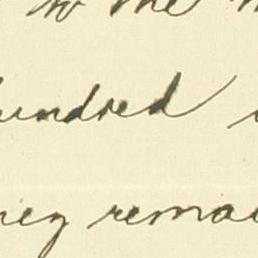 to the
hundred
ney remai